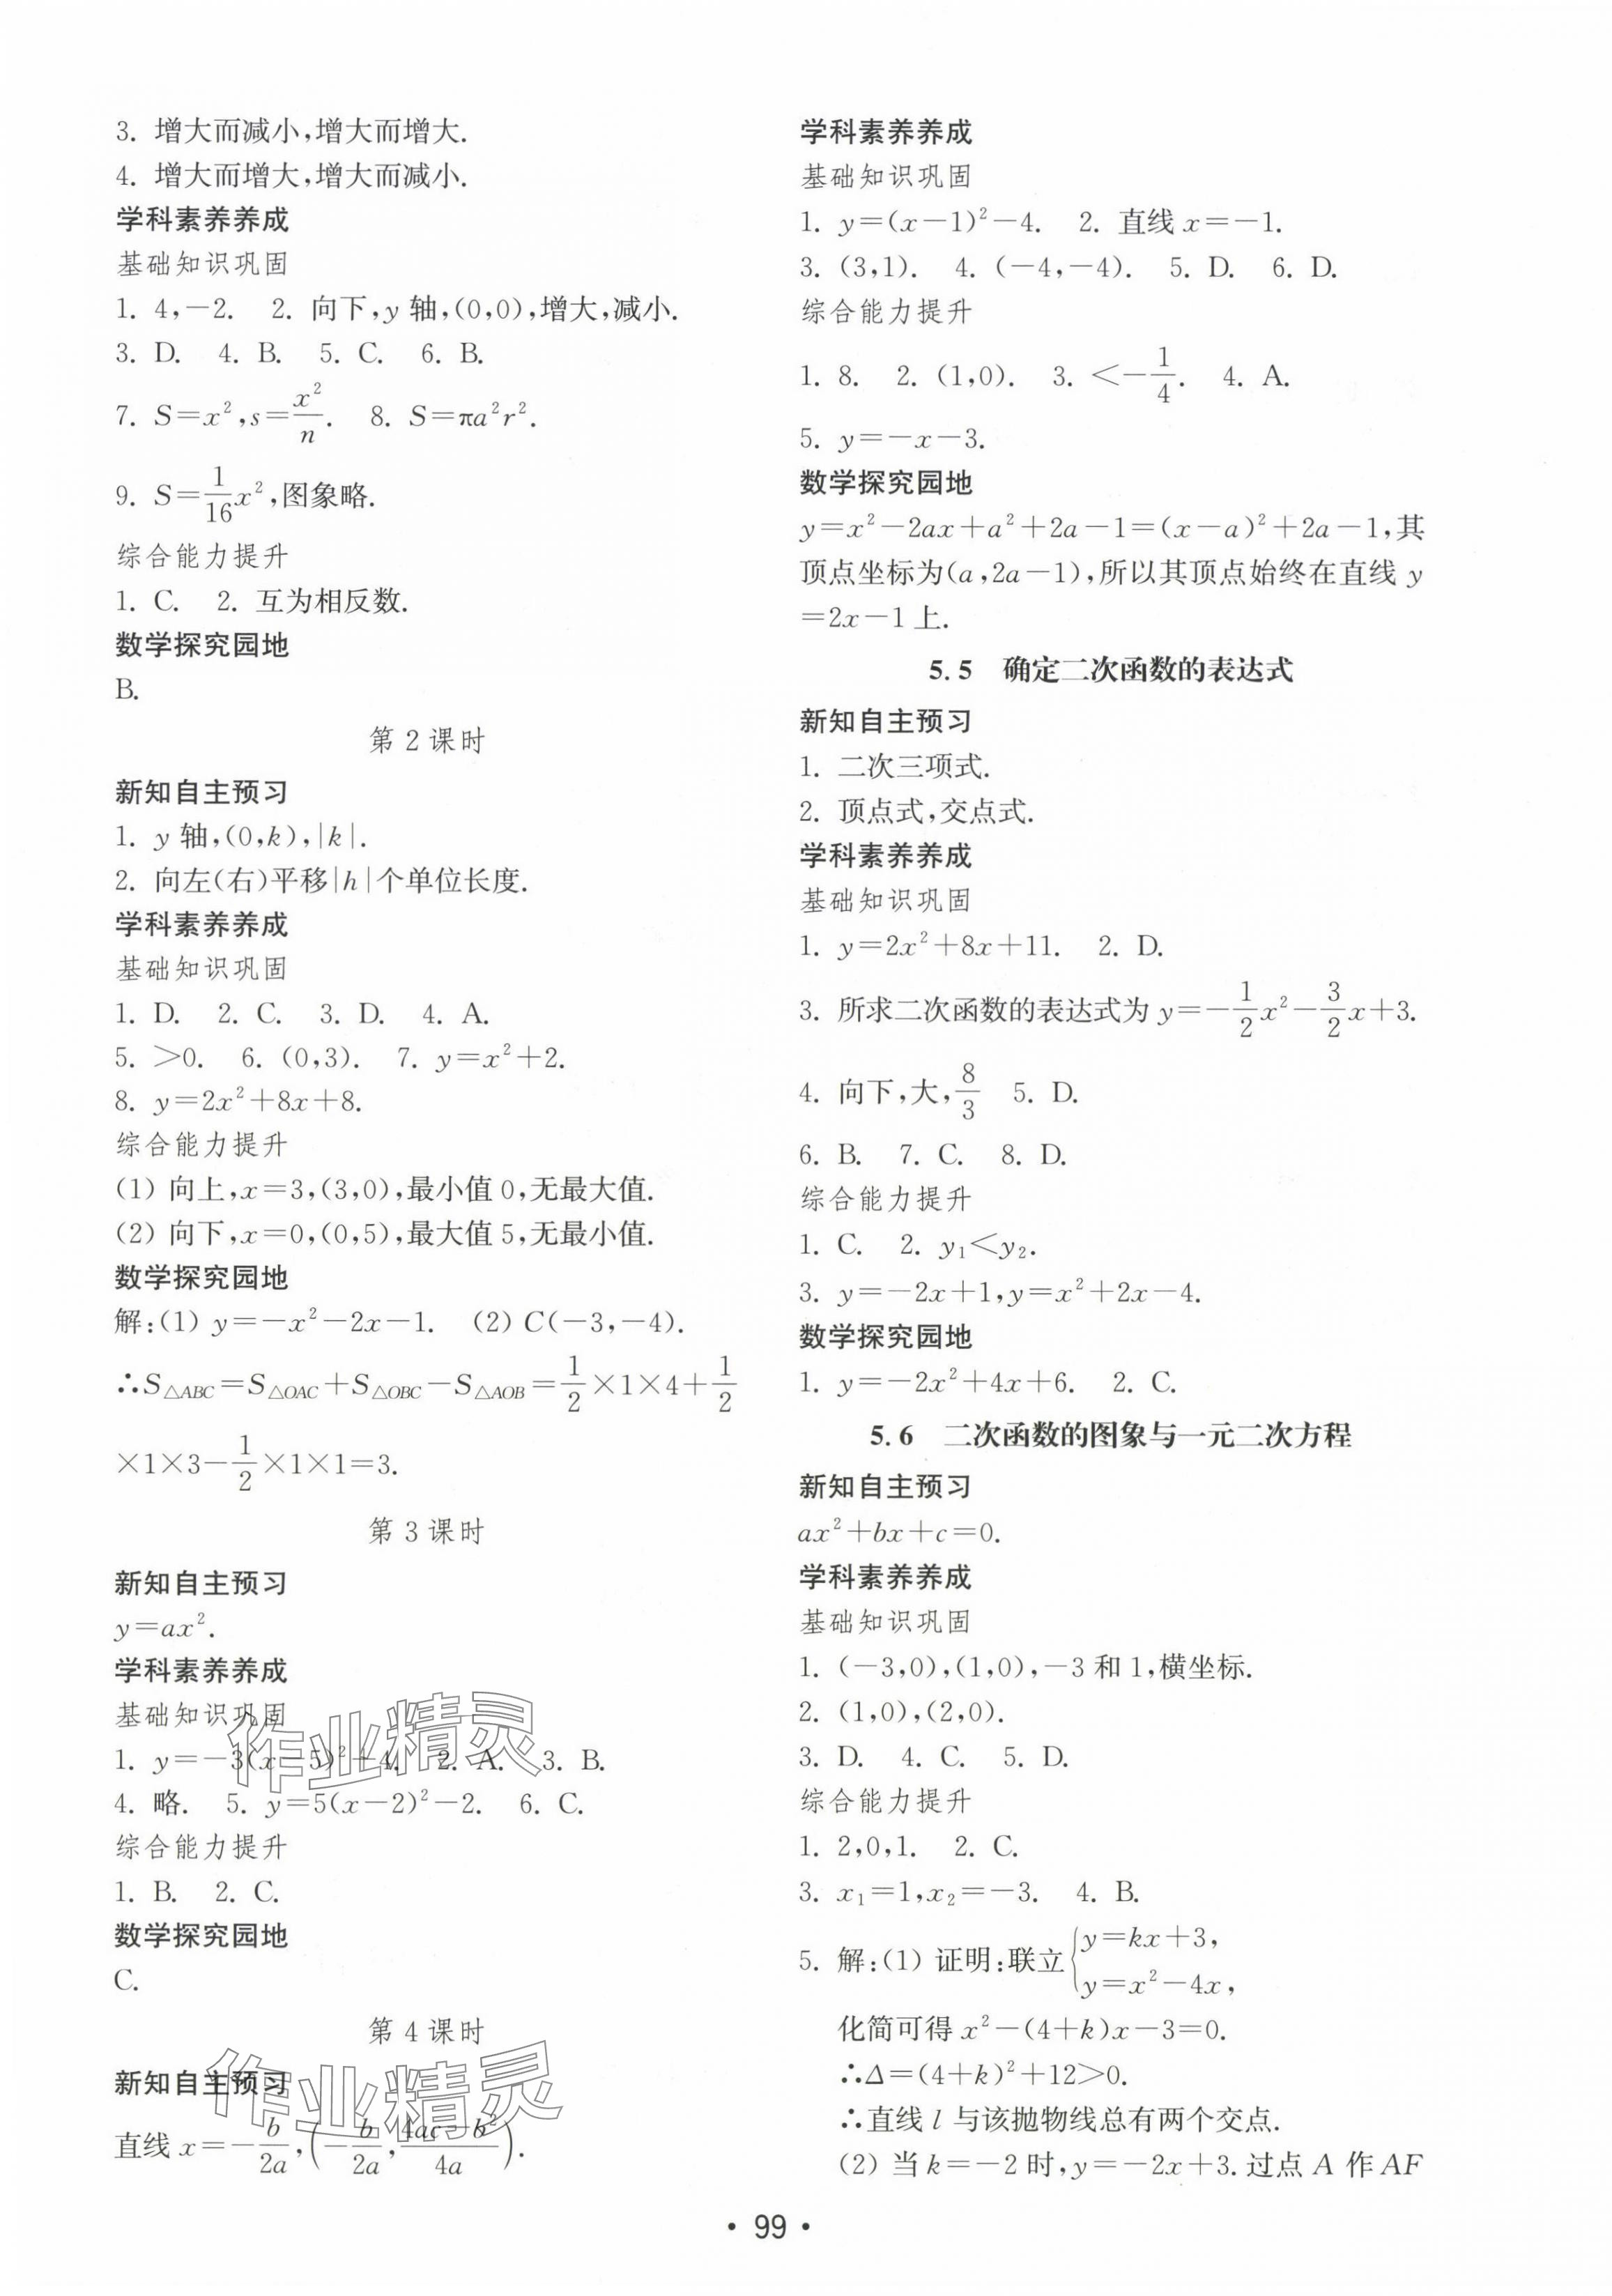 3. 增大而减小,增大而增大.
4. 增大而增大,增大而减小.
学科素养养成
基础知识巩固
1. 4,-2.　2. 向下,y 轴,(0,0),增大,减小.
3. D.　4. B.　5. C.　6. B.
7. S=x²,s=x²/n.　8. S=πa²r².
9. S=1/16x²,图象略.
综合能力提升
1. C.　2. 互为相反数.
数学探究园地
B.
第 2 课时
新知自主预习
1. y 轴,(0,k),|k|.
2. 向左(右)平移|h|个单位长度.
学科素养养成
基础知识巩固
1. D.　2. C.　3. D.　4. A.
5. >0.　6. (0,3).　7. y=x²+2.
8. y=2x²+8x+8.
综合能力提升
(1) 向上,x=3,(3,0),最小值 0,无最大值.
(2) 向下,x=0,(0,5),最大值 5,无最小值.
数学探究园地
解:(1) y=-x²-2x-1.　(2) C(-3,-4).
∴S△ABC=S△OAC+S△OBC-S△AOB=1/2×1×4+1/2
×1×3-1/2×1×1=3.
第 3 课时
新知自主预习
y=ax².
学科素养养成
基础知识巩固
1. y=-3(x-5)²+4.　2. A.　3. B.
4. 略.　5. y=5(x-2)²-2.　6. C.
综合能力提升
1. B.　2. C.
数学探究园地
C.
第 4 课时
新知自主预习
直线 x=-b/2a,(-b/2a,(4ac-b²)/4a).
学科素养养成
基础知识巩固
1. y=(x-1)²-4.　2. 直线 x=-1.
3. (3,1).　4. (-4,-4).　5. D.　6. D.
综合能力提升
1. 8.　2. (1,0).　3. <-1/4.　4. A.
5. y=-x-3.
数学探究园地
y=x²-2ax+a²+2a-1=(x-a)²+2a-1,其
顶点坐标为(a,2a-1),所以其顶点始终在直线 y
=2x-1 上.
5.5　确定二次函数的表达式
新知自主预习
1. 二次三项式.
2. 顶点式,交点式.
学科素养养成
基础知识巩固
1. y=2x²+8x+11.　2. D.
3. 所求二次函数的表达式为 y=-1/2x²-3/2x+3.
4. 向下,大,8/3　5. D.
6. B.　7. C.　8. D.
综合能力提升
1. C.　2. y₁<y₂.
3. y=-2x+1,y=x²+2x-4.
数学探究园地
1. y=-2x²+4x+6.　2. C.
5.6　二次函数的图象与一元二次方程
新知自主预习
ax²+bx+c=0.
学科素养养成
基础知识巩固
1. (-3,0),(1,0),-3 和 1,横坐标.
2. (1,0),(2,0).
3. D.　4. C.　5. D.
综合能力提升
1. 2,0,1.　2. C.
3. x₁=1,x₂=-3.　4. B.
5. 解:(1) 证明:联立{y=kx+3,
y=x²-4x,
化简可得 x²-(4+k)x-3=0.
∴Δ=(4+k)²+12>0.
∴直线 l 与该抛物线总有两个交点.
(2) 当 k=-2 时,y=-2x+3. 过点 A 作 AF
• 99 •
作业精灵
作业精灵